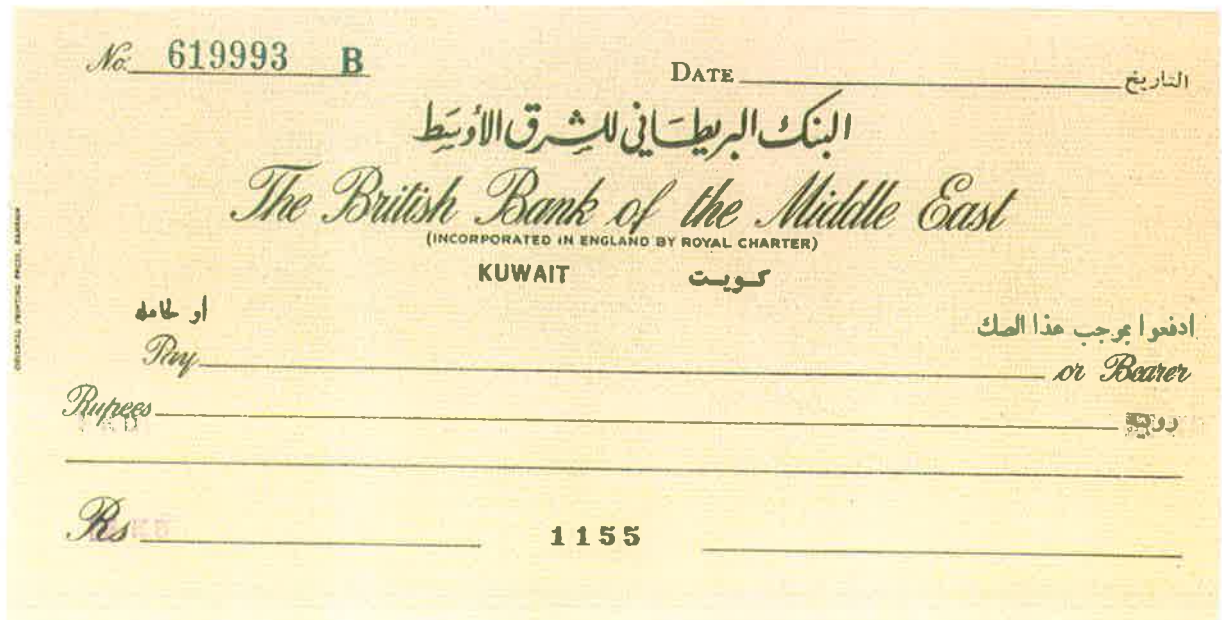 No. 619993 B
DATE التاريخ
البنك البريطاني للشرق الأوسط
The British Bank of the Middle East
(INCORPORATED IN ENGLAND BY ROYAL CHARTER)
KUWAIT كويت
ادفعوا بموجب هذا الصك أو لحامله
Pay or Bearer
Rupees روبية
Rs 1155
ORIENTAL PRINTING PRESS, BAHRAIN